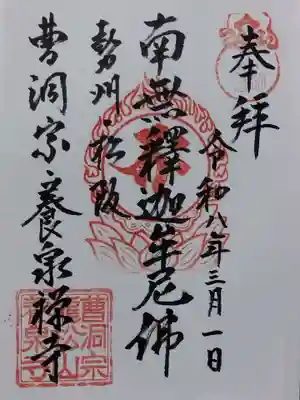 奉拝
令和八年三月一日
南無釋迦牟尼佛
勢州松阪
曹洞宗養泉禅寺
曹洞宗
養泉寺